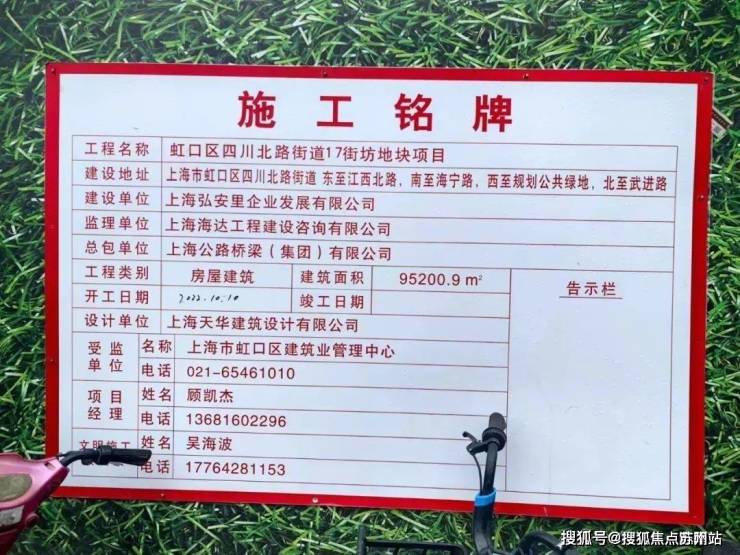 施工铭牌
工程名称 虹口区四川北路街道17街坊地块项目
建设地址 上海市虹口区四川北路街道 东至江西北路，南至海宁路，西至规划公共绿地，北至武进路
建设单位 上海弘安里企业发展有限公司
监理单位 上海海达工程建设咨询有限公司
总包单位 上海公路桥梁（集团）有限公司
工程类别 房屋建筑 建筑面积 95200.9 m²
告示栏
开工日期 2022.10.10 竣工日期
设计单位 上海天华建筑设计有限公司
受监单位 名称 上海市虹口区建筑业管理中心
电话 021-65461010
项目经理 姓名 顾凯杰
电话 13681602296
文明施工 姓名 吴海波
电话 17764281153
搜狐号@搜狐焦点苏州站